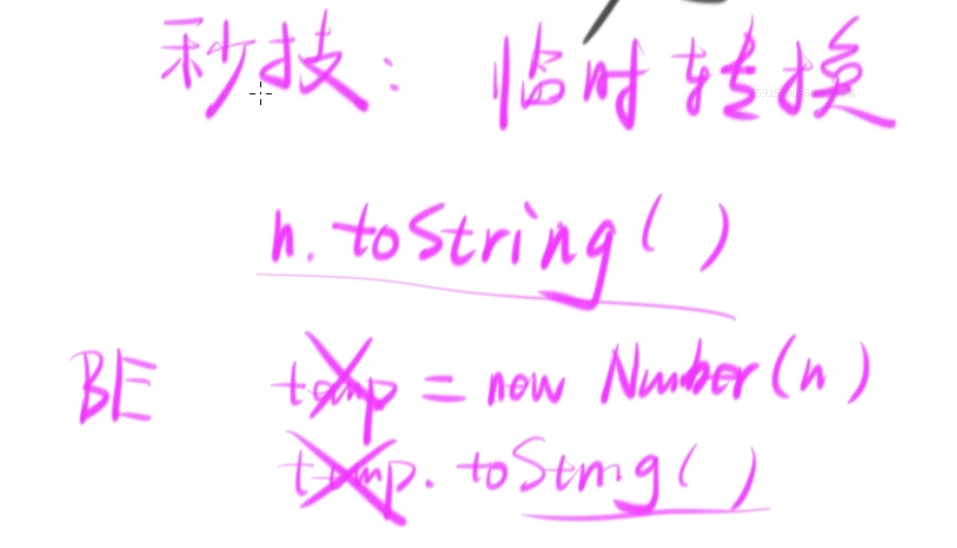 秒技: 临时转换
n.toString( )
BE temp = new Number(n)
temp.toString( )